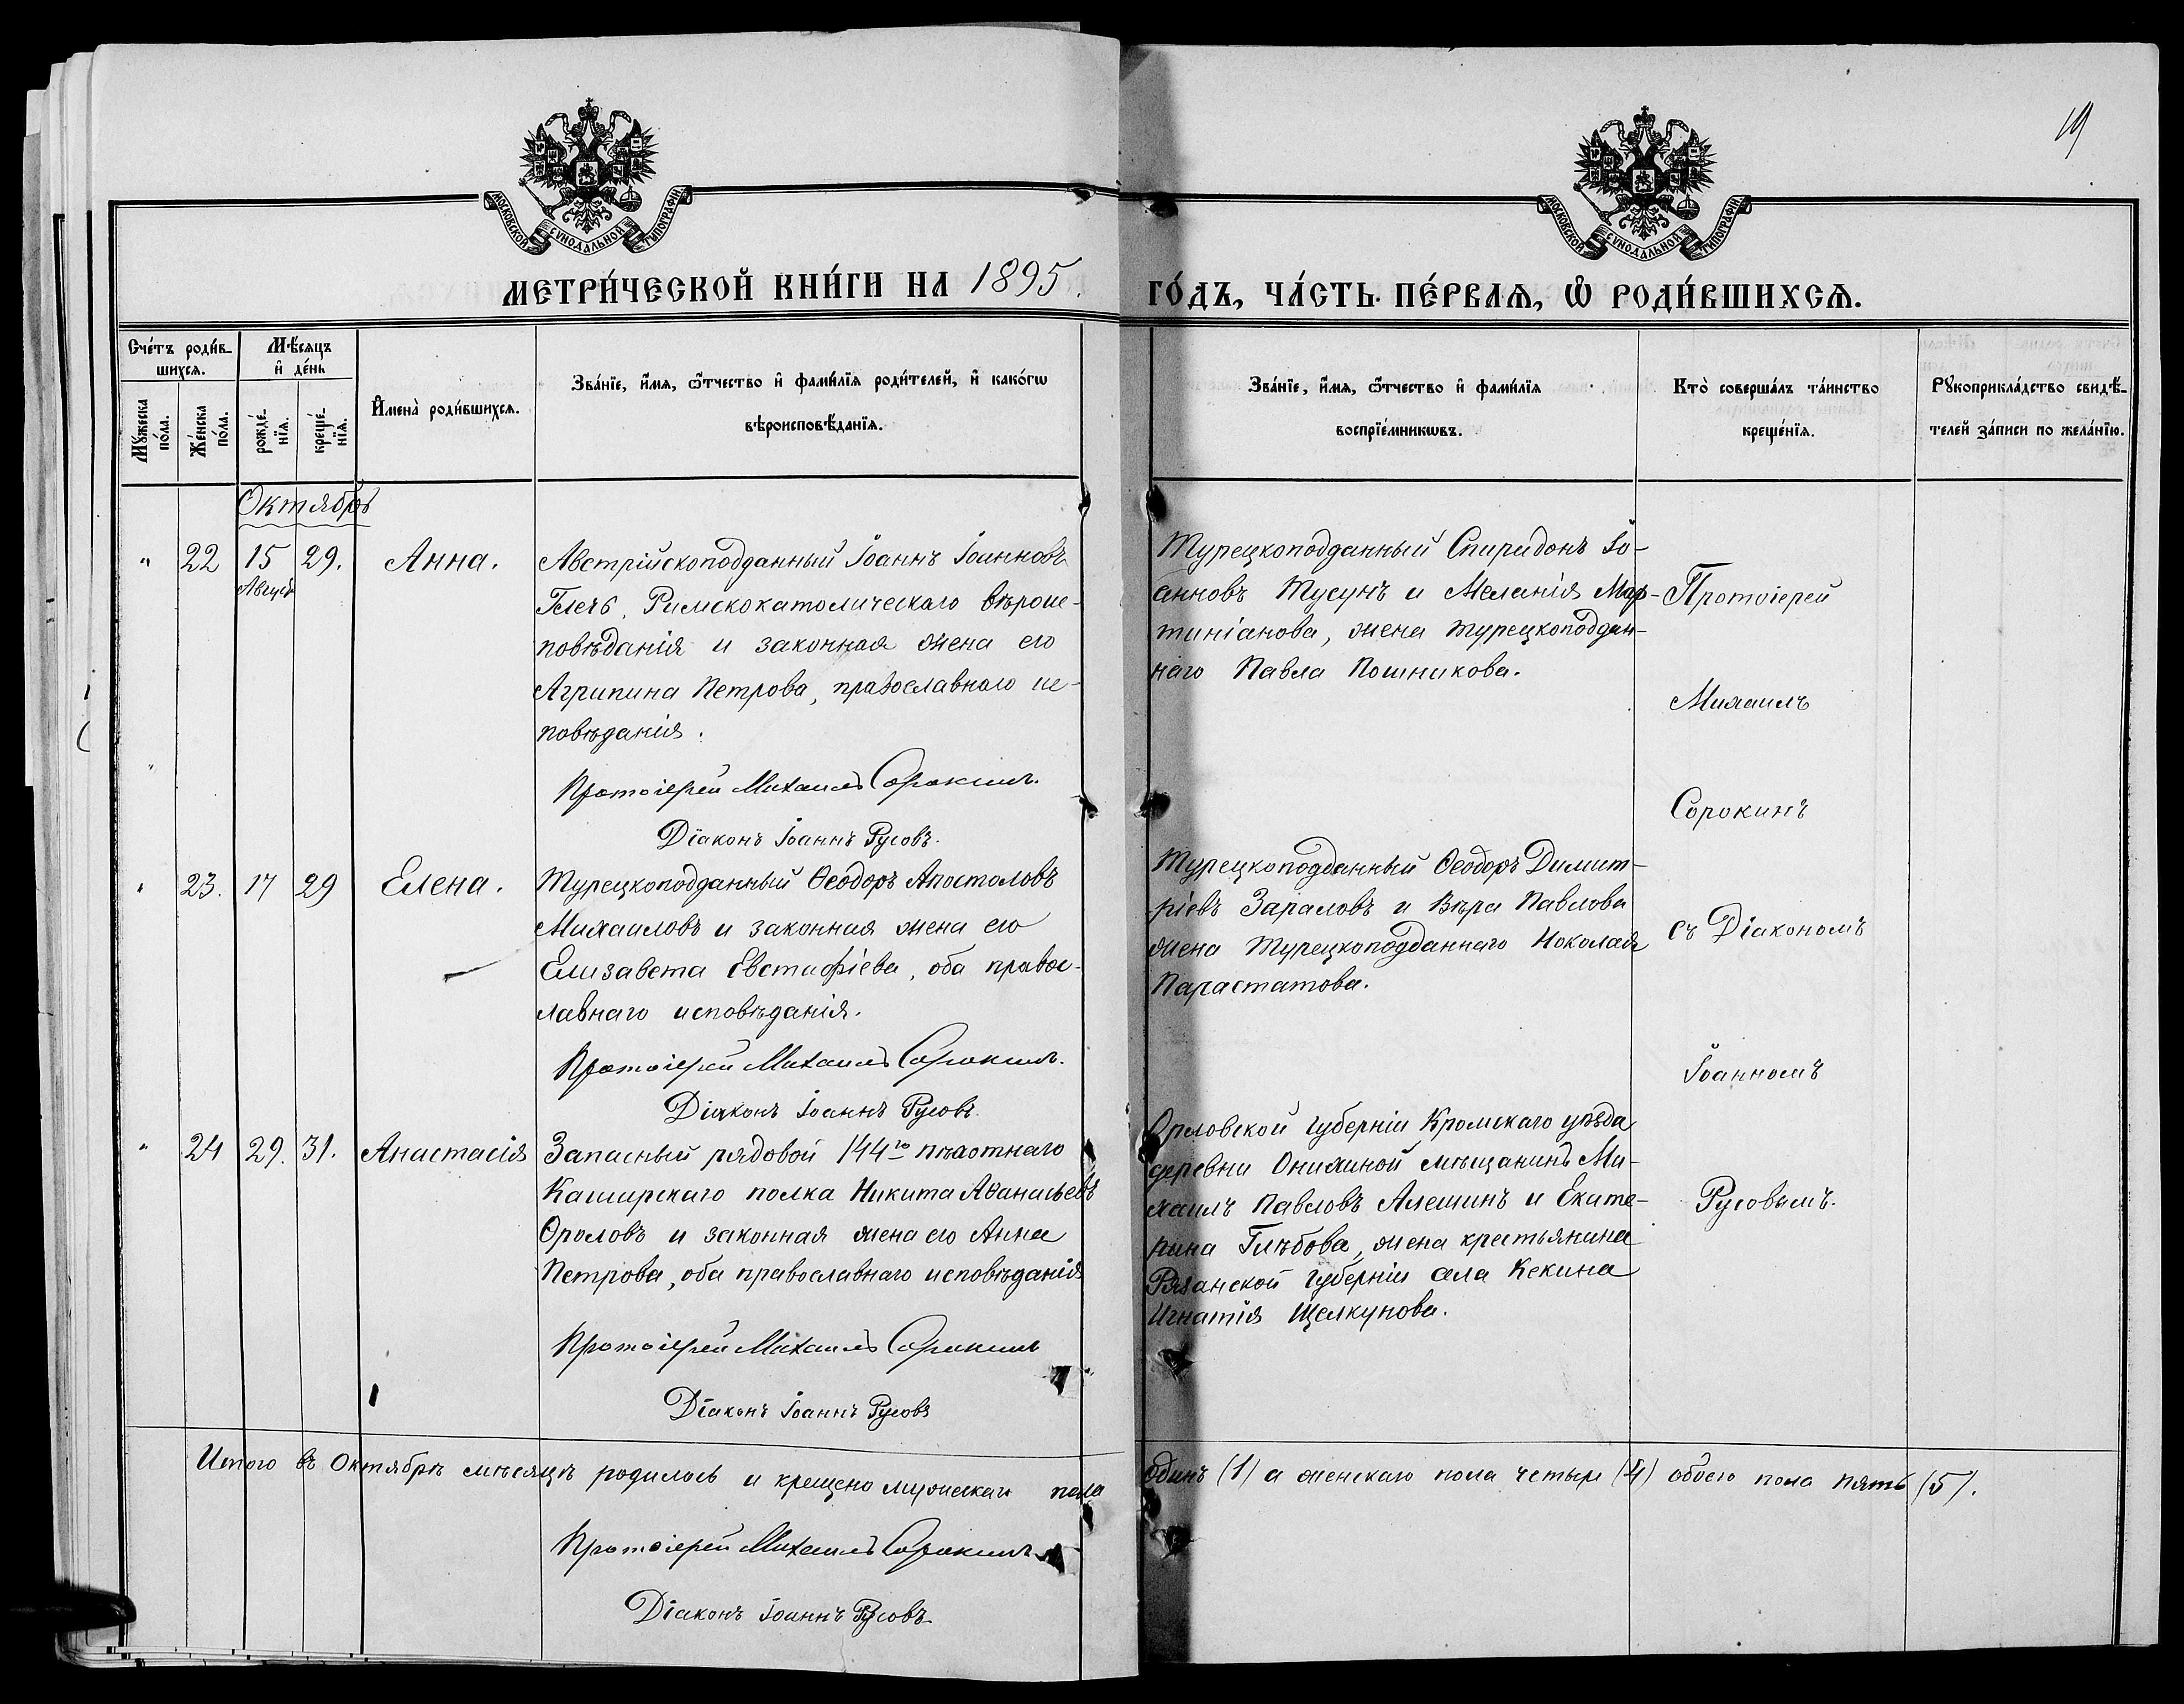 19
МОСКОВСКОЙ СУНОДАЛЬНОЙ ТИПОГРАФІИ
МОСКОВСКОЙ СУНОДАЛЬНОЙ ТИПОГРАФІИ
МЕТРИ́ЧЕСКОЙ КНИ́ГИ НА 1895.
ГО́ДЪ, ЧА́СТЬ ПЕ́РВАЯ, Ѡ҆ РОДИ́ВШИХСѦ.
Сче́тъ роди́в-
шихсѧ.
Мꙋ́жеска
по́ла.
Же́нска
по́ла.
Мѣ́сѧцъ
и҆ де́нь
рожде́-
нїѧ.
креще́-
нїѧ.
И҆мена̀ роди́вшихсѧ.
Зва́нїе, и҆́мѧ, ѻ҆́тчество и҆ фами́лїѧ роди́телей, и҆ како́гѡ
вѣроисповѣ́данїѧ.
Зва́нїе, и҆́мѧ, ѻ҆́тчество и҆ фами́лїѧ
воспрїе́мникѡвъ.
Кто̀ соверша́лъ та́инство
креще́нїѧ.
Рꙋкоприкла́дство свидѣ́-
телей за́писи по жела́нїю.
Октябрь
" 22 15 29. Анна.
Август
Австрійскоподданный Іоаннъ Іоанновъ
Глечъ, Римскокатолическаго вѣроис-
повѣданія и законная жена его
Агрипина Петрова, православнаго ис-
повѣданія.
Протоіерей Михаилъ Сорокинъ.
Діаконъ Іоаннъ Русовъ.
Турецкоподданный Спиридонъ Іо-
анновъ Тусунъ и Меланія Мар-
тиніанова, жена турецкоподдан-
наго Павла Пошникова.
Протоіерей
Михаилъ
Сорокинъ
съ Діакономъ
Іоанномъ
Русовымъ.
" 23. 17 29 Елена.
Турецкоподданный Ѳеодоръ Апостоловъ
Михаиловъ и законная жена его
Елизавета Евстафіева, оба правос-
лавнаго исповѣданія.
Протоіерей Михаилъ Сорокинъ.
Діаконъ Іоаннъ Русовъ
Турецкоподданный Ѳеодоръ Димит-
ріевъ Зараловъ и Вѣра Павлова
жена Турецкоподданнаго Николая
Парастатова.
" 24 29. 31. Анастасія
Запасный рядовой 144го пѣхотнаго
Каширскаго полка Никита Аѳанасьевъ
Фроловъ и законная жена его Анна
Петрова, оба православнаго исповѣданія
Протоіерей Михаилъ Сорокинъ
Діаконъ Іоаннъ Русовъ
Орловской губерніи Кромскаго уѣзда
деревни Онихиной мѣщанинъ Ми-
хаилъ Павловъ Алешинъ и Екате-
рина Глѣбова, жена крестьянина
Рязанской губерніи села Кекина
Игнатія Щелкунова.
Итого въ Октябрѣ мѣсяцѣ родилось и крещено мужескаго пола
одинъ (1) а женскаго пола четыре (4) обоего пола пять (5).
Протоіерей Михаилъ Сорокинъ
Діаконъ Іоаннъ Русовъ.